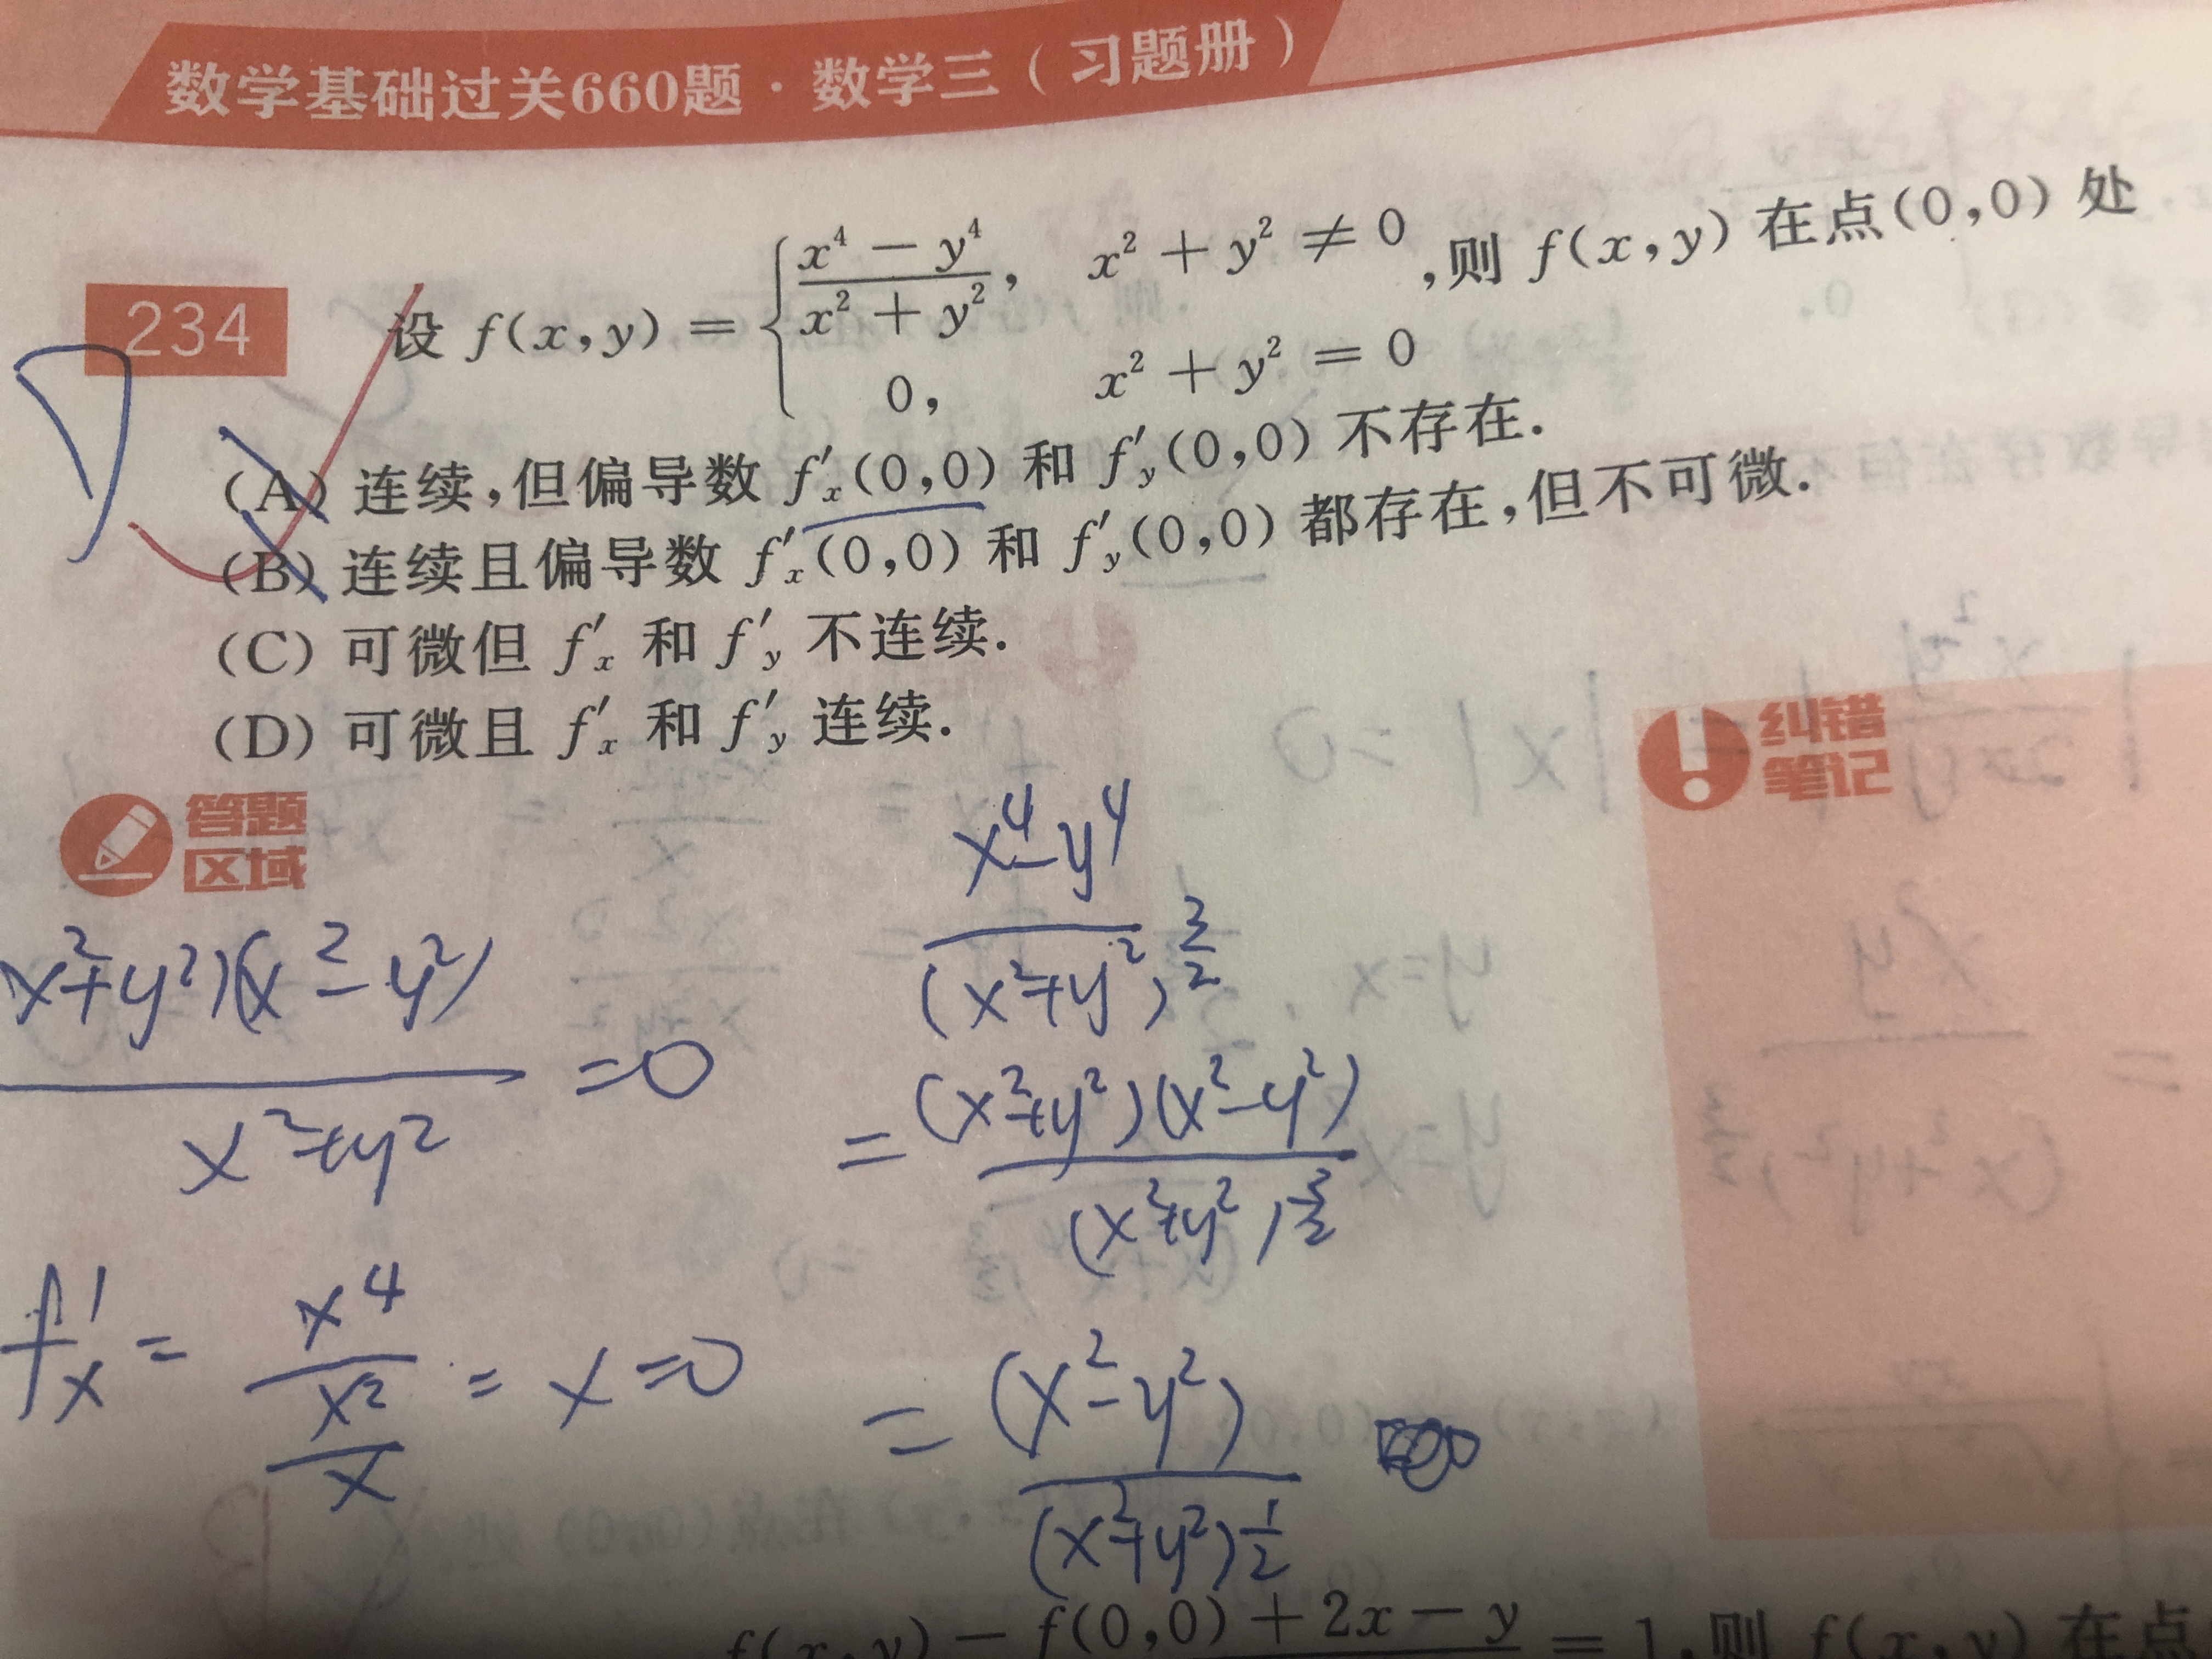 数学基础过关660题·数学三（习题册）
234 设 f(x,y) = { (x⁴ − y⁴)/(x² + y²), x² + y² ≠ 0
0, x² + y² = 0 ,则 f(x,y) 在点(0,0) 处
(A) 连续,但偏导数 f′ₓ(0,0) 和 f′ᵧ(0,0) 不存在.
(B) 连续且偏导数 f′ₓ(0,0) 和 f′ᵧ(0,0) 都存在,但不可微.
(C) 可微但 f′ₓ 和 f′ᵧ 不连续.
(D) 可微且 f′ₓ 和 f′ᵧ 连续.
D
答题
区域
纠错
笔记
x²+y²)(x²−y²)
/ x²+y² =0
f′ₓ = (x⁴/x²)/x = x =0
(x⁴−y⁴)/(x²+y²)^(3/2)
= (x²+y²)(x²−y²)/(x²+y²)^(3/2)
= (x²−y²)/(x²+y²)^(1/2)
f(x,y) − f(0,0) + 2x − y = 1,则 f(x,y) 在点